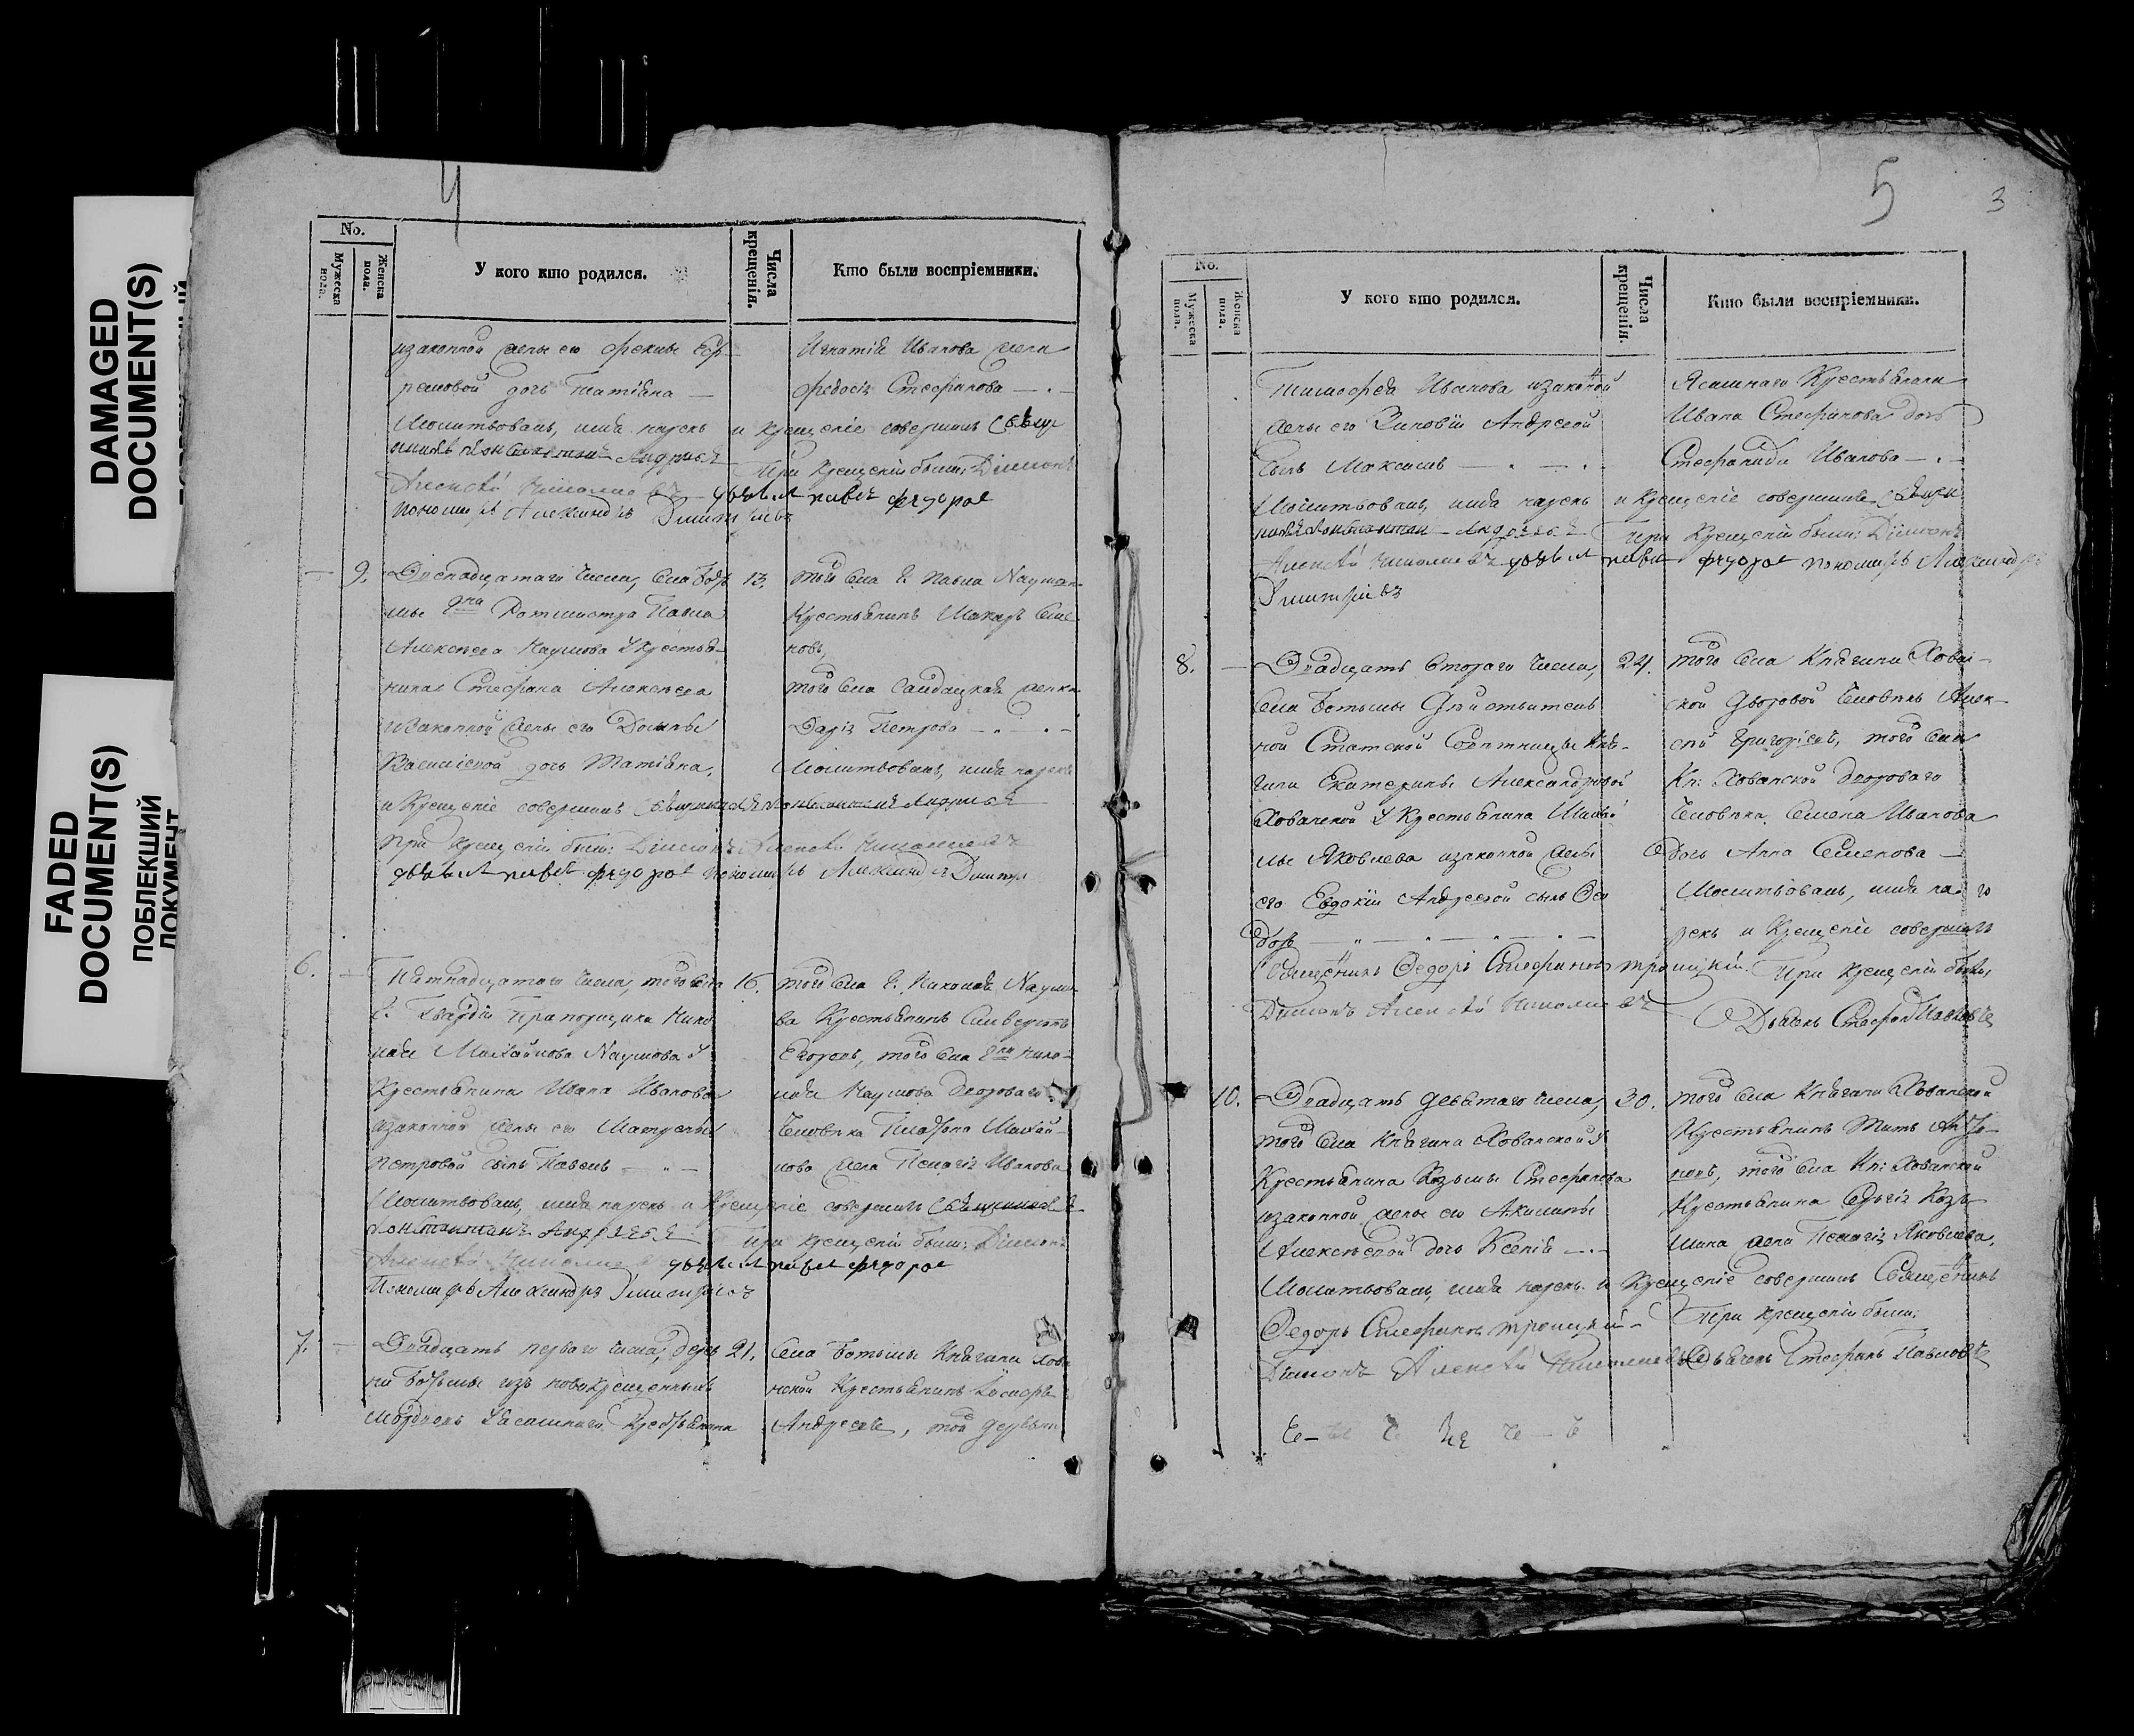 DAMAGED
DOCUMENT(S)
FADED
DOCUMENT(S)
ПОБЛЕКШИЙ
ДОКУМЕНТ
4
No.
Мужеска пола.
Женска пола.
У кого кто родился.
Числа крещенія.
Кто были воспріемники.
изаконной жены его Феклы Еф-
ремовой дочь Татіяна —
Игнатія Иванова жена
Федосія Стефанова
Молитвовалъ, имя нарекъ и крещеніе совершилъ Свяще
никъ Константинъ Андреевъ При крещеніи были: Діаконъ
Алексѣй Николаевъ дьячекъ Павелъ Федоровъ
пономарь Александръ Димитріевъ
9. Двенадцатаго числа, села Бот 13.
мы г-на Ротмистра Павла
Алексеева Наумова у крестья-
нина Стефана Алексеева
изаконной жены его
Василіевой дочь Татіяна.
того села г. Павла Наумова
Крестьянинъ Макаръ Семе
новъ,
того села Салдацкая женка
Дарія Петрова
Молитвовалъ, имя нарекъ
и Крещеніе совершилъ Священникъ Константинъ Андреевъ
При Крещеніи были: Діаконъ Алексѣй Николаевъ
дьячекъ Павелъ Федоровъ пономарь Александръ Дмитр
6. Пятнадцатаго числа, того села 16.
г. Гвардіи Прапорщика Нико
лая Михайлова Наумова у
Крестьянина Ивана Иванова
изаконной жены его
Петровой сынъ Павелъ
того села г. Николая Наумо-
ва Крестьянинъ
Егоровъ, того села г-на Нико-
лая Наумова двороваго
человека Михай-
лова жена Пелагія Иванова
Молитвовалъ, имя нарекъ и Крещеніе совершилъ Священникъ
Константинъ Андреевъ При крещеніи были: Діаконъ
Алексѣй Николаевъ дьячекъ Павелъ Федоровъ
Пономарь Александръ Димитріевъ
7. Двадцать перваго числа, дерев 21.
ни Ботьмы изъ новокрещенныхъ
Мордвовъ у Ясашнаго Крестьянина
села Ботьмы Княгини Хова
нской Крестьянинъ
Андреевъ, той деревни
5
3
No.
Мужеска пола.
Женска пола.
У кого кто родился.
Числа крещенія.
Кто были воспріемники.
Тимофея Иванова изаконной
жены его Зиновіи Андреевой
сынъ Максимъ
Ясашнаго Крестьянина
Ивана Стефанова дочь
Стефанида Иванова
Молитвовалъ, имя нарекъ и Крещеніе совершилъ Священ
никъ Константин Андреевъ При Крещеніи были: Діаконъ
Алексѣй Николаевъ дьячекъ Павелъ Федоровъ пономарь Александръ
Димитріевъ
8. Двадцать втораго числа, 24.
села Ботьмы Действитель
ной Статской Советницы Кня-
гини Екатерины Александровой
Хованской у Крестьянина Михай
лы Яковлева изаконной жены
его Евдокіи Андреевой сынъ Фео
доръ
того села Княгини Хован-
ской дворовой человекъ Алек-
сей Григоріевъ, того села
Кн: Хованской двороваго
человека Семена Иванова
дочь Анна Семенова
Молитвовалъ, имя на-
рекъ и Крещеніе совершилъ
Священникъ Федоръ Стефановъ Троицкій. При крещеніи были,
Діаконъ Алексѣй Николаевъ
Дьячекъ Стефанъ Павловъ
10. Двадцать девятаго числа, 30.
того села Княгини Хованской у
Крестьянина Козьмы Стефанова
изаконной жены его Акилины
Алексеевой дочь Ксенія
того села Княгини Хованской
Крестьянинъ
того села Кн: Хованской
Крестьянина
жена Пелагія Яковлева.
Молитвовалъ, имя нарекъ и Крещеніе совершилъ Священникъ
Федоръ Стефановъ Троицкій При крещеніи были:
Діаконъ Алексѣй Николаевъ Дьячекъ Стефанъ Павловъ